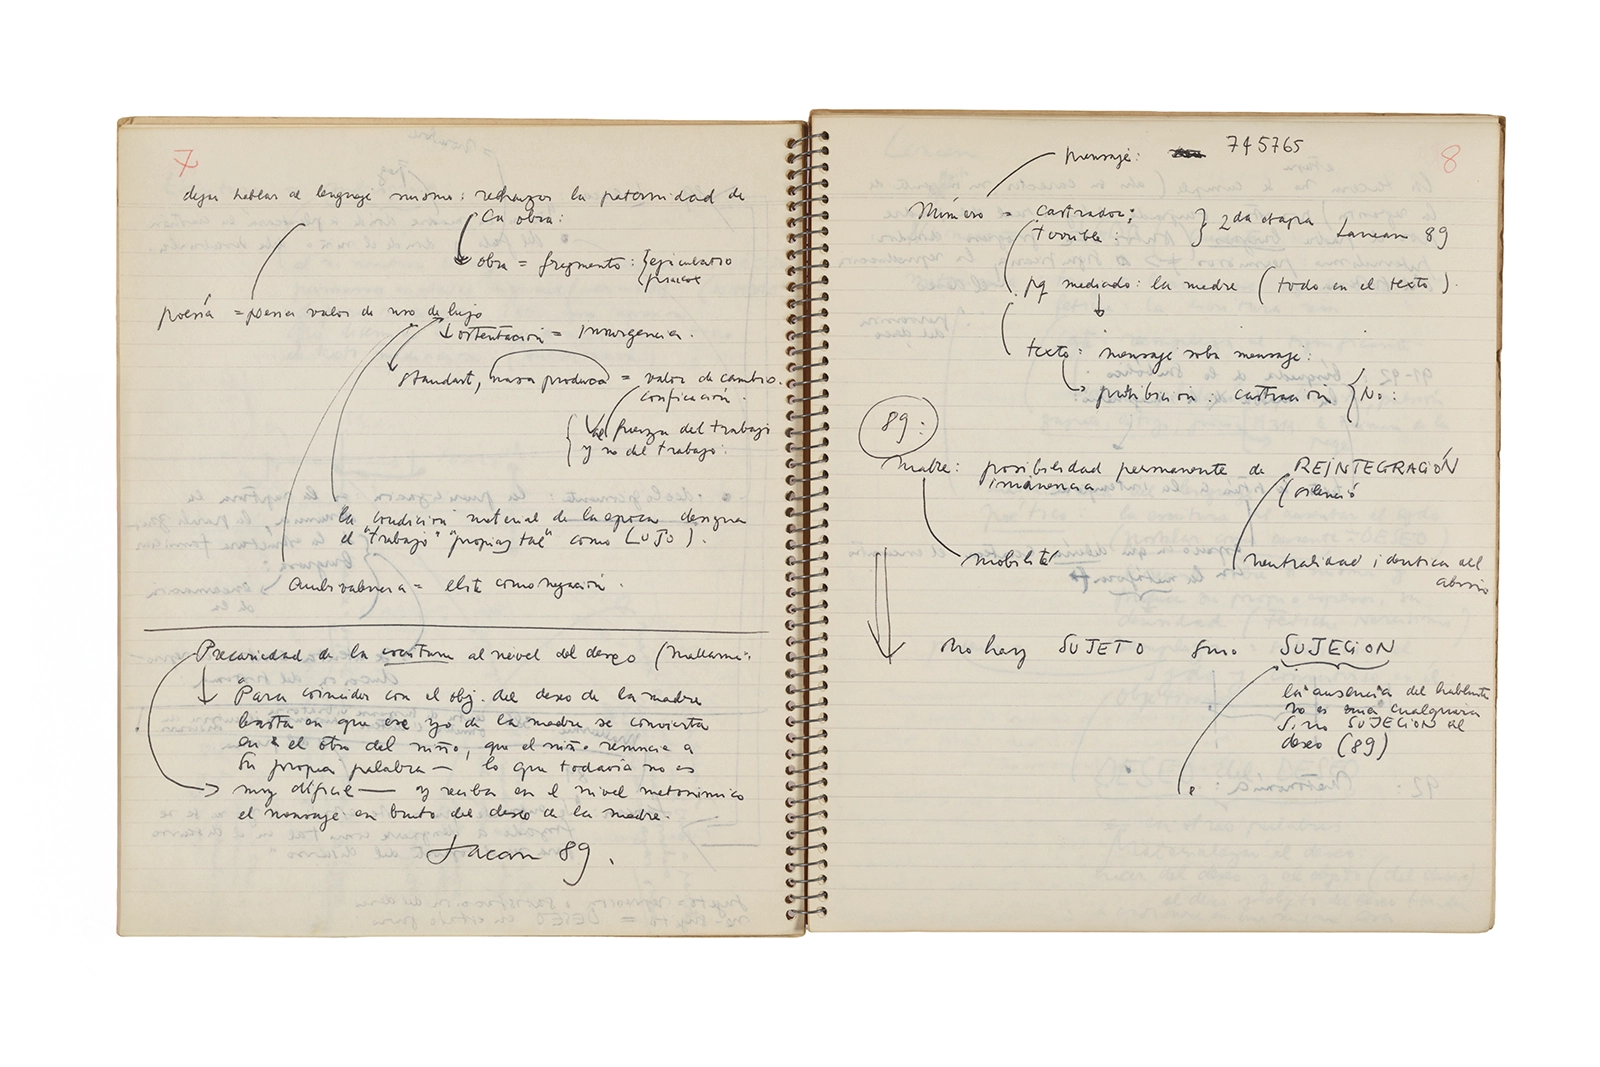 7
dejar hablar al lenguaje mismo: rechazar la paternidad de
la obra:
obra = fragmento: { ejaculatio
praecox
poesía = poesía valor de uso de lujo
ostentación = insurgencia.
standart, masa producida = valor de cambio.
cosificación.
{ de fuerza del trabajo
y no del trabajo.
la condición material de la época designa
el "trabajo" "propiamente tal" como (LUJO).
Ambivalencia = elite como negación.
Precariedad de la escritura al nivel del deseo (Mallarmé.
Para coincidir con el obj. del deseo de la madre
basta en que ese yo de la madre se convierta
en el otro del niño, que el niño renuncie a
su propia palabra — lo que todavía no es
muy difícil — y reciba en el nivel metonímico
el mensaje en bruto del deseo de la madre.
Lacan 89.
8
mensaje: 745765
= castrador; } 2da etapa Lacan 89
terrible:
pq mediado: la madre (todo en el texto).
texto: mensaje sobre mensaje:
prohibición: castración { No:
89:
Madre: posibilidad permanente de REINTEGRACIÓN
inmanencia (silencio
mobilité neutralidad idéntica del
abismo
No hay SUJETO sino SUJECION
la ausencia del hablante
no es una cualquiera
sino SUJECION al
deseo (89)